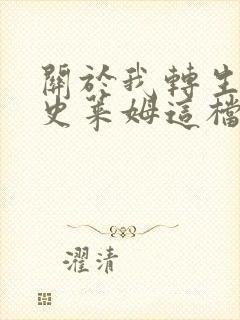 關於我轉生
史萊姆這檔
濯清